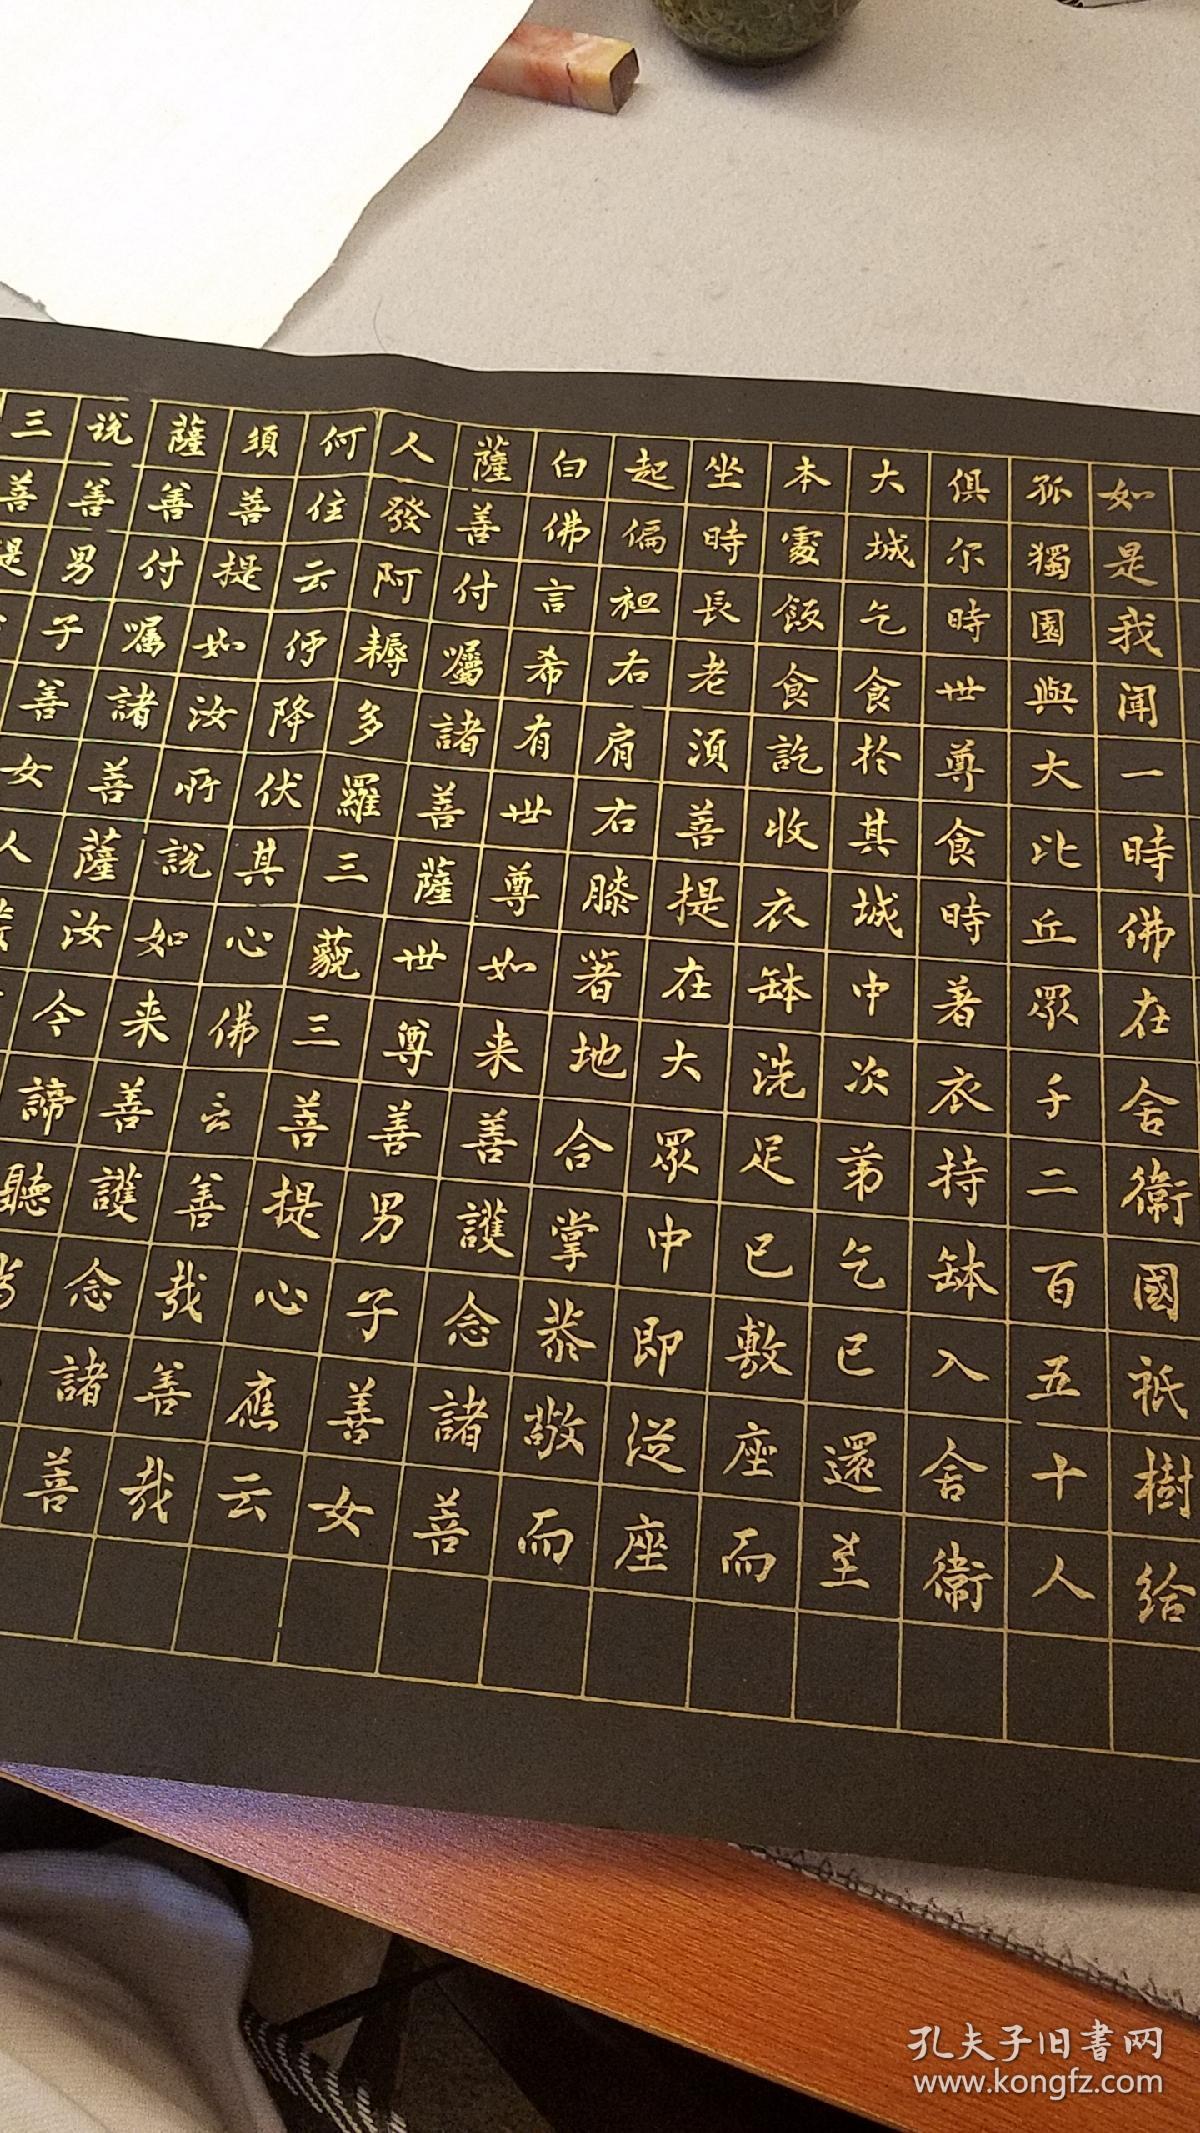 如是我闻一時佛在舍衛國祇樹给
孤獨園與大比丘眾千二百五十人
俱尔時世尊食時著衣持缽入舍衛
大城乞食於其城中次第乞已还至
本處飯食訖收衣缽洗足已敷座而
坐時長老須菩提在大眾中即從座
起偏袒右肩右膝著地合掌恭敬而
白佛言希有世尊如来善護念諸菩
薩善付囑諸菩薩世尊善男子善女
人發阿耨多羅三藐三菩提心應云
何住云何降伏其心佛言善哉善哉
須菩提如汝所說如来善護念諸菩
薩善付囑諸菩薩汝今諦聽
说善男子善女人
三菩提
孔夫子旧書网
www.kongfz.com